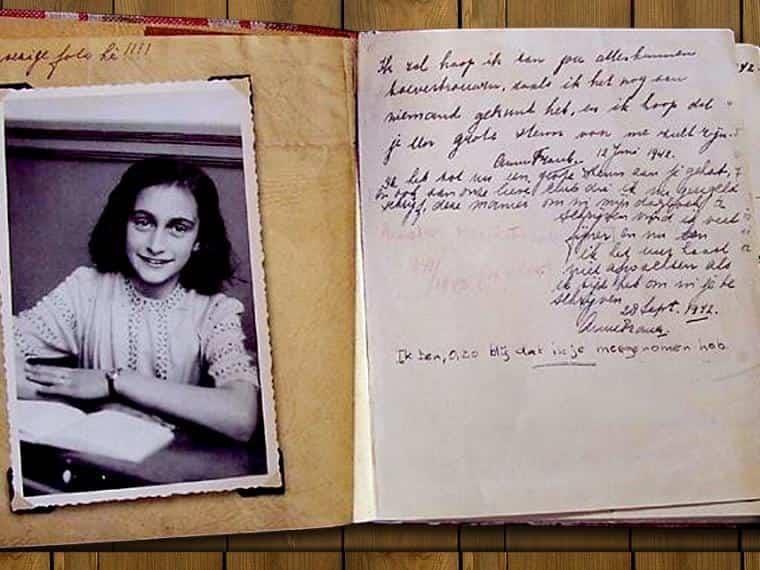 foto hè !!!!
Ik zal hoop ik aan jou alles kunnen
toevertrouwen, zoals ik het nog aan
niemand gekunt heb, en ik hoop dat
je een grote steun voor me zult zijn.
Anne Frank. 12 Juni 1942.
Ik heb tot nu een grote steun aan je gehad,
en ook aan onze lieve club die ik nu geregeld
schrijf, deze manier om in mijn dagboek te
schrijven vind ik veel
fijner en nu kan
ik het uur haast
niet afwachten als
ik tijd heb om in je te
schrijven
28 Sept. 1942.
Anne Frank.
Ik ben, o, zo blij dat ik je meegenomen heb